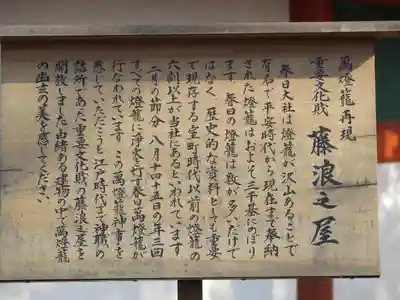 萬燈籠再現
重要文化財 藤浪之屋
春日大社は燈籠が沢山あることで
有名で平安時代から現在まで奉納
された燈籠はおよそ三千基にのぼり
ます。春日の燈籠は数が多いだけで
はなく、歴史的な資料としても重要
で現存する室町時代以前の燈籠の
六割以上が当社にあるといわれています
二月の節分、八月十四・十五日の年三回
すべての燈籠に浄火を灯す春日萬燈籠が
行なわれています この萬燈籠神事を
感じていただこうと江戸時代まで神職の
詰所であった重要文化財の藤浪之屋を
開放しました 由緒ある建物の中で萬燈籠
の幽玄の美を感じてください。